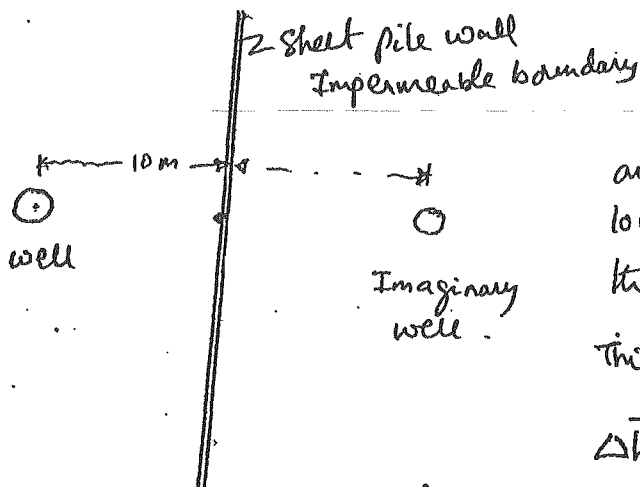 Sheet pile wall
Impermeable boundary
10 m
well
Imaginary
well.